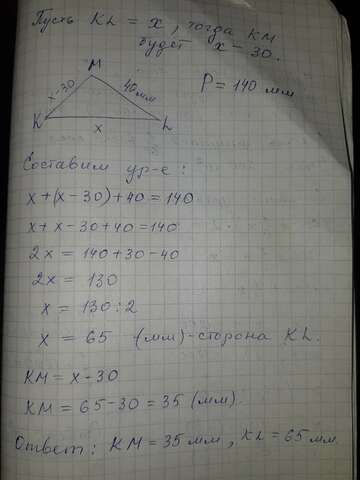 Пусть KL = x, тогда KM
будет x - 30.
M
x-30
40мм
P = 140 мм
K
x
L
Составим ур-е:
x+(x-30)+40=140
x+x-30+40=140
2x = 140+30-40
2x = 130
x = 130:2
x = 65 (мм)-сторона KL.
KM = x-30
KM = 65-30 = 35 (мм).
Ответ: KM = 35мм, KL = 65мм.